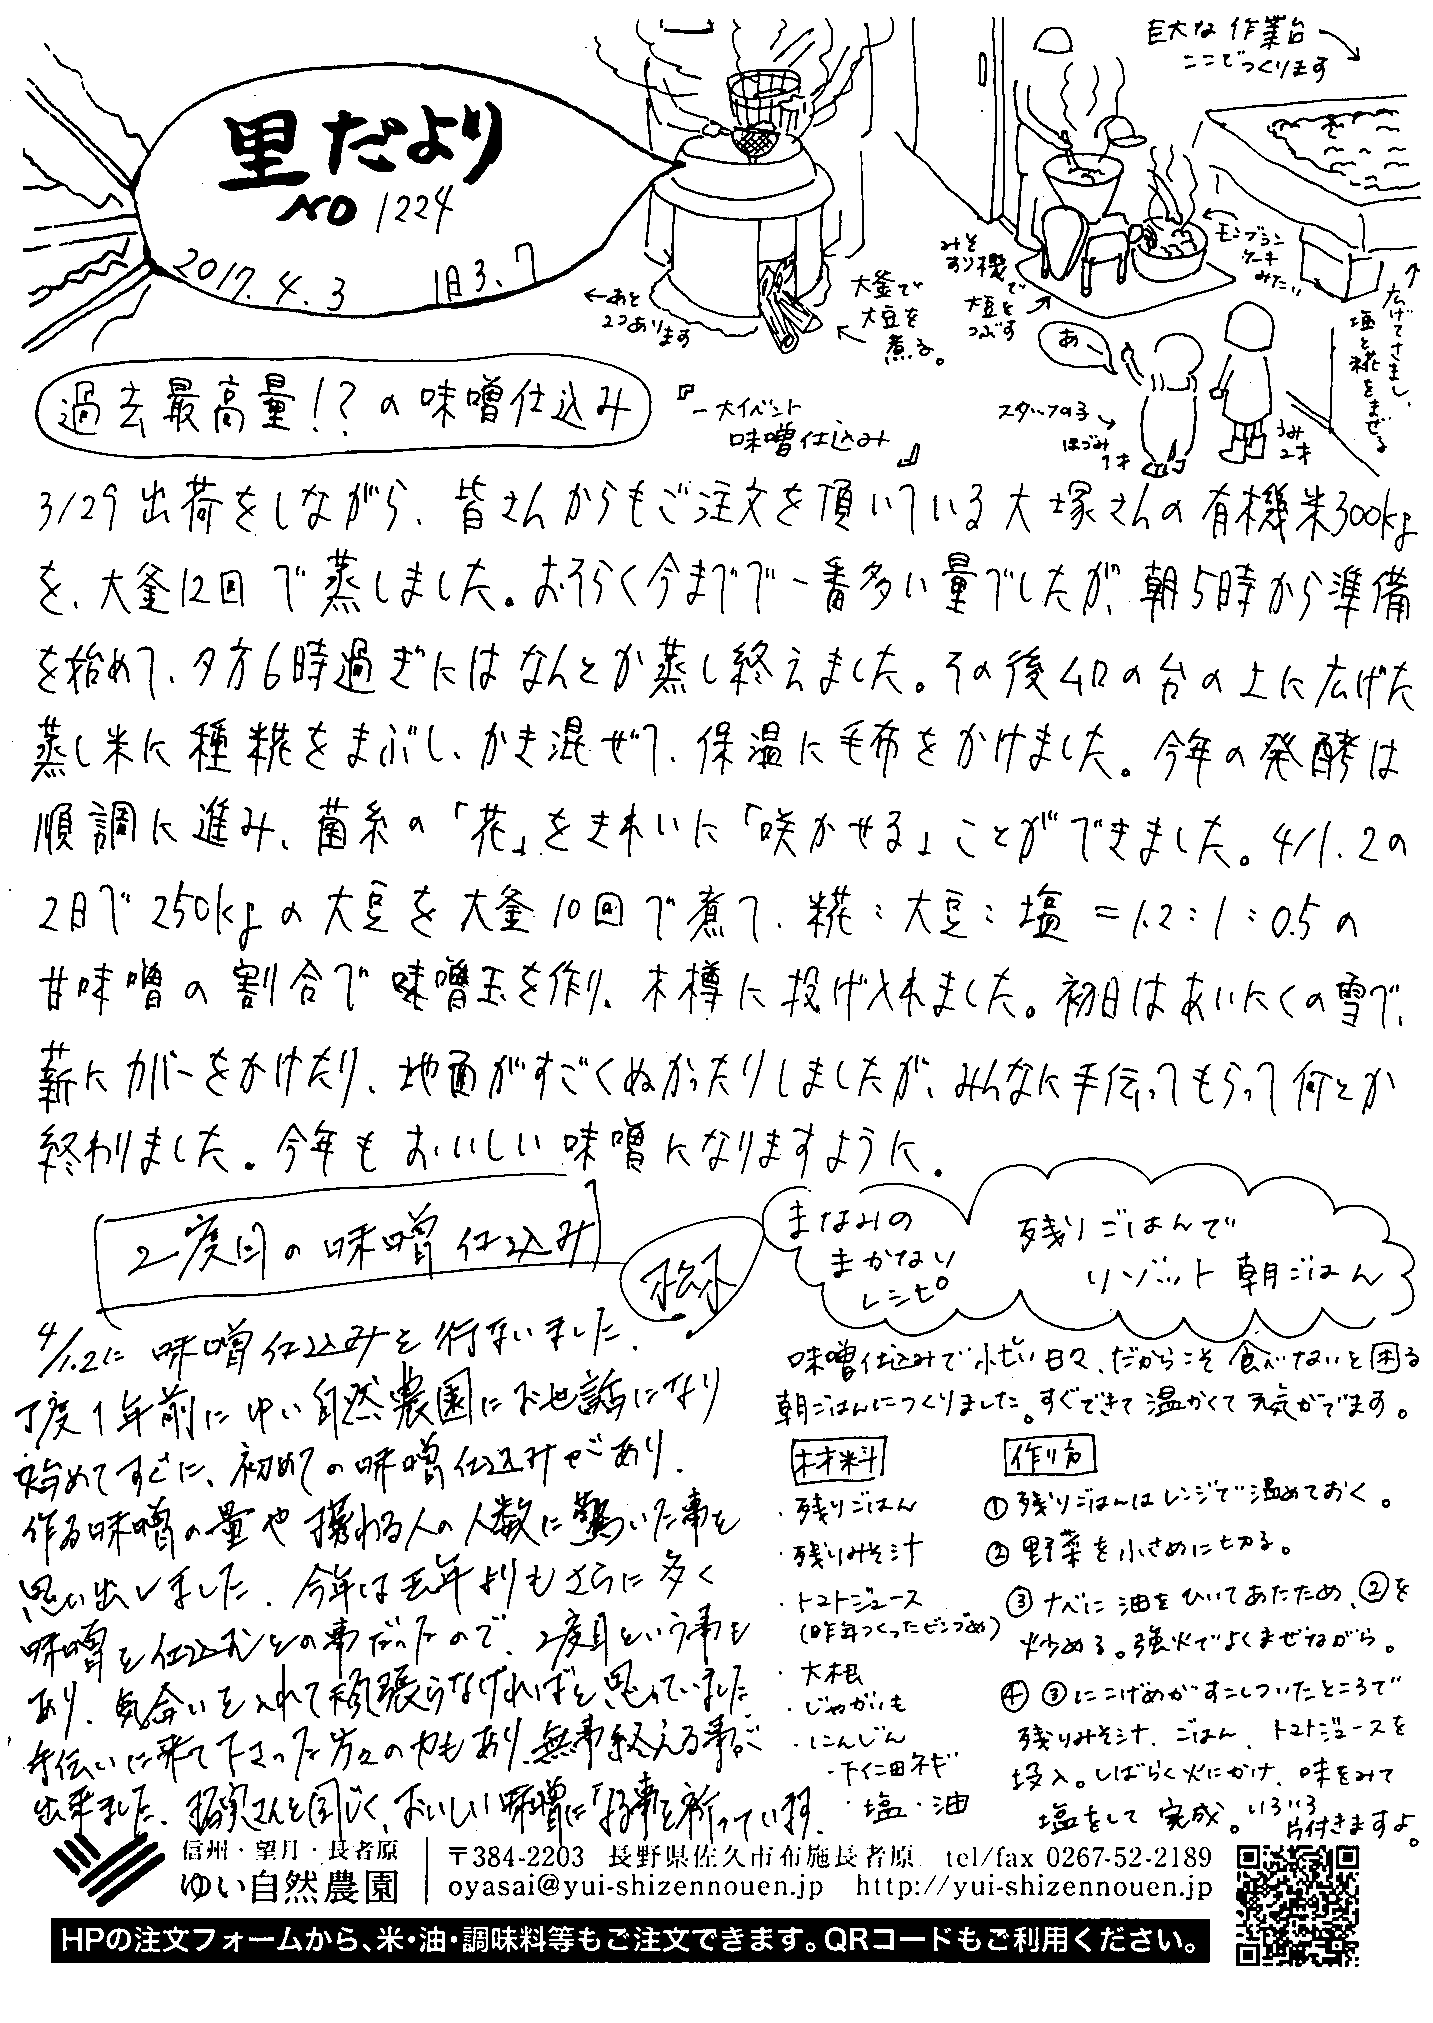 里だより
NO 1224
2017.4.3 旧3.7
巨大な作業台
ここでつくります
←あと
2つあります
大釜で
大豆を
煮る。
みそ
すり機で
大豆を
つぶす
モンブラン
ケーキ
みたい
広げてさまし、
塩と糀をまぜる
あー
スタッフの子
ほづみ
1才
うみ
2才
過去最高量!?の味噌仕込み
『一大イベント
味噌仕込み』
3/29 出荷をしながら、皆さんからもご注文を頂いている大塚さんの有機米300kg
を、大釜12回で蒸しました。おそらく今までで一番多い量でしたが、朝5時から準備
を始めて、夕方6時過ぎにはなんとか蒸し終えました。その後ムロの台の上に広げた
蒸し米に種糀をまぶし、かき混ぜて、保温に毛布をかけました。今年の発酵は
順調に進み、菌糸の「花」をきれいに「咲かせる」ことができました。4/1.2の
2日で250kgの大豆を大釜10回で煮て、糀:大豆:塩=1.2:1:0.5の
甘味噌の割合で味噌玉を作り、木樽に投げ入れました。初日はあいにくの雪で、
薪にカバーをかけたり、地面がすごくぬかったりしましたが、みんなに手伝ってもらって何とか
終わりました。今年もおいしい味噌になりますように。
2度目の味噌仕込み
4/1.2に味噌仕込みを行ないました。
丁度1年前にゆい自然農園にお世話になり
始めてすぐに、初めての味噌仕込みがあり、
作る味噌の量や携わる人の人数に驚いた事を
思い出しました。今年は去年よりもさらに多く
味噌を仕込むとの事だったので、2度目という事も
あり、気合いを入れて頑張らなければと思っていました。
手伝いに来て下さった方々の力もあり、無事終える事が
出来ました。皆さんと同じく、おいしい味噌になる事を祈っています。
まなみの
まかない
レシピ
残りごはんで
リゾット朝ごはん
味噌仕込みで忙しい日々、だからこそ食べないと困る
朝ごはんにつくりました。すぐできて温かくて元気がでます。
材料
・残りごはん
・残りみそ汁
・トマトジュース
(昨年つくったビンづめ)
・大根
・じゃがいも
・にんじん
・下仁田ネギ
・塩・油
作り方
①残りごはんはレンジで温めておく。
②野菜を小さめに切る。
③ナベに油をひいてあたため、②を
炒める。強火でよくまぜながら。
④③にこげめがすこしついたところで
残りみそ汁、ごはん、トマトジュースを
投入。しばらく火にかけ、味をみて
塩をして完成。いろいろ
片付きますよ。
信州・望月・長者原
ゆい自然農園
〒384-2203 長野県佐久市布施長者原 tel/fax 0267-52-2189
oyasai@yui-shizennouen.jp http://yui-shizennouen.jp
HPの注文フォームから、米・油・調味料等もご注文できます。QRコードもご利用ください。